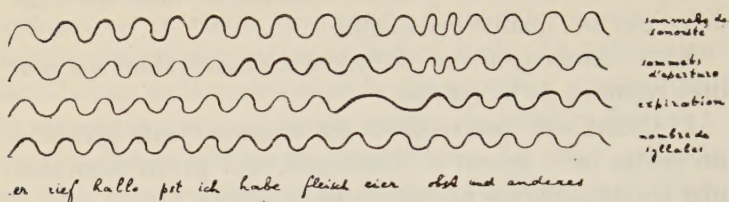 sommets de
sonorité
sommets
d'aperture
expiration
nombre de
syllabes
er rief hallo pst ich habe fleisch eier obst und anderes